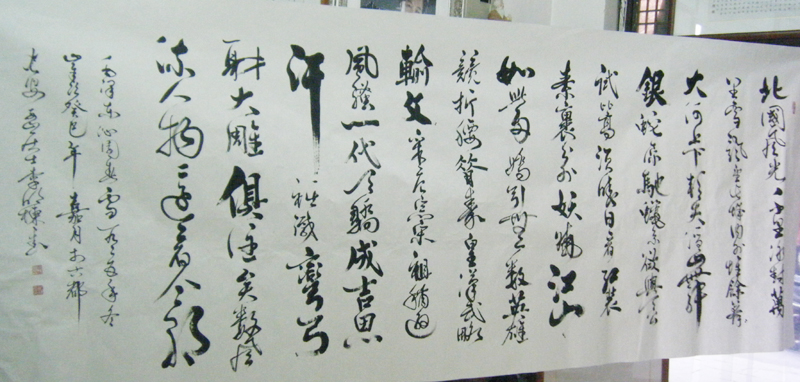 北國風光千里冰封萬
里雪飄望長城內外惟餘莽
大河上下頓失滔滔山舞
銀蛇原馳蠟象欲與天公
試比高須晴日看紅裝
素裹分外妖嬈江山
如此多嬌引無數英雄
競折腰惜秦皇漢武略
輸文采唐宗宋祖稍遜
風騷一代天驕成吉思
汗祗識彎弓
射大雕俱往矣數風
流人物還看今朝
毛澤東沁園春雪
癸巳年嘉月於六都
居士李